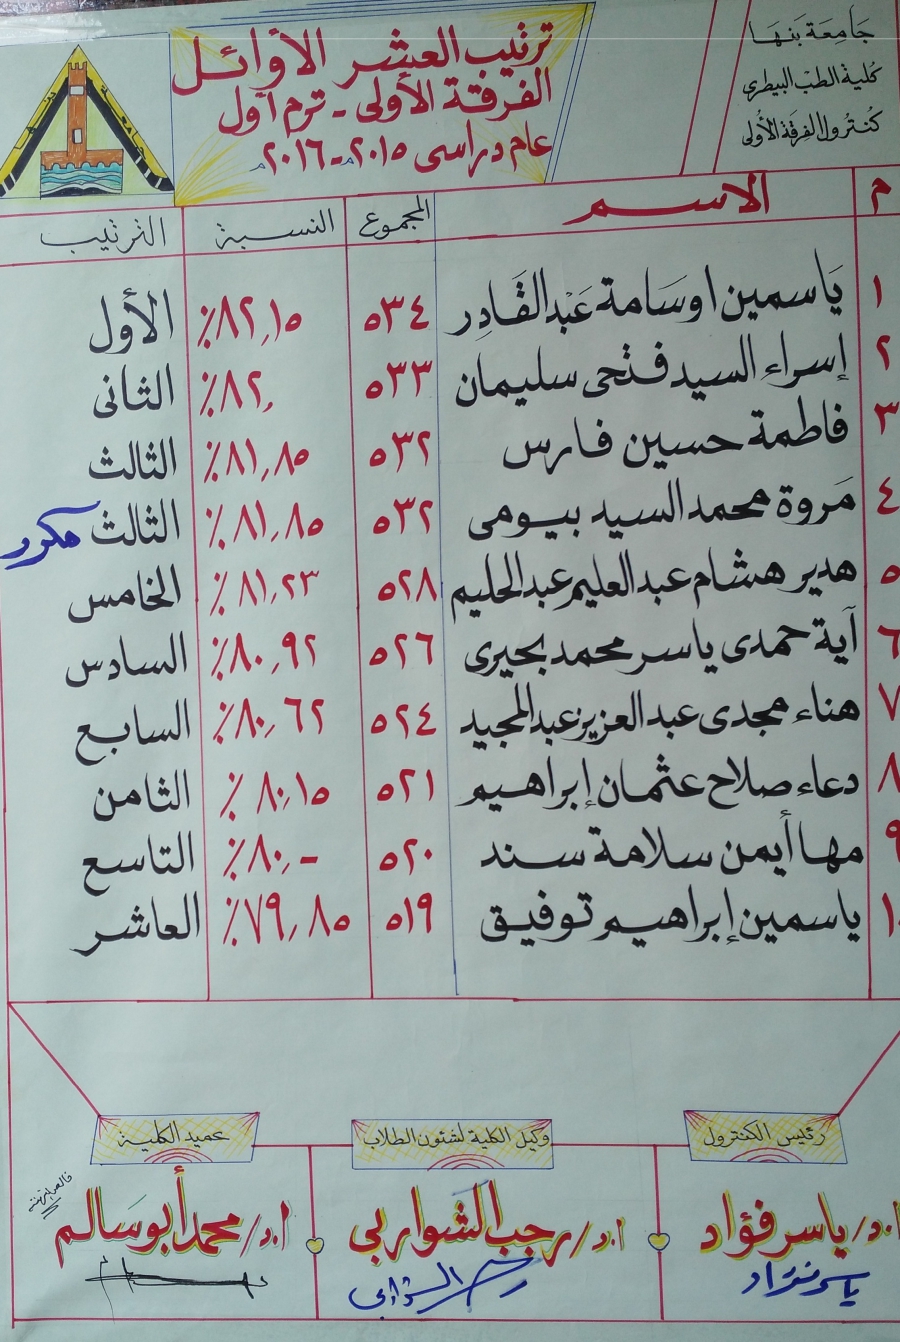 جَامِعَة بَنهَا
كلية الطب البيطرى
كُنترول الفرقة الأولى
ترتيب العشر الأوائل
الفرقة الأولى - ترم أول
عام دراسى ٢٠١٥م - ٢٠١٦م
م الاسم المجموع النسبة الترتيب
١ يَاسمين اوسَامة عَبْد القَادِر ٥٣٤ ٨٢,١٥٪ الأول
٢ إسراء السيد فتحى سليمان ٥٣٣ ٨٢,٪ الثانى
٣ فاطمة حسين فارس ٥٣٢ ٨١,٨٥٪ الثالث
٤ مَروة محمد السيد بيومى ٥٣٢ ٨١,٨٥٪ الثالث مكرر
٥ هدير هشام عبد العليم عبد الحليم ٥٢٨ ٨١,٢٣٪ الخامس
٦ آية حمدى ياسر محمد بحيرى ٥٢٦ ٨٠,٩٢٪ السادس
٧ هناء مجدى عبد العزيز عبد المجيد ٥٢٤ ٨٠,٦٢٪ السابع
٨ دعاء صلاح عثمان إبراهيم ٥٢١ ٨٠,١٥٪ الثامن
٩ مها أيمن سلامة سند ٥٢٠ ٨٠,-٪ التاسع
١٠ ياسمين إبراهيم توفيق ٥١٩ ٧٩,٨٥٪ العاشر
رئيس الكنترول
وكيل الكلية لشئون الطلاب
عميد الكلية
ا.د/ ياسر فؤاد
ا.د/ رجب الشواربي
ا.د/ محمد أبو سالم
ياسر فؤاد